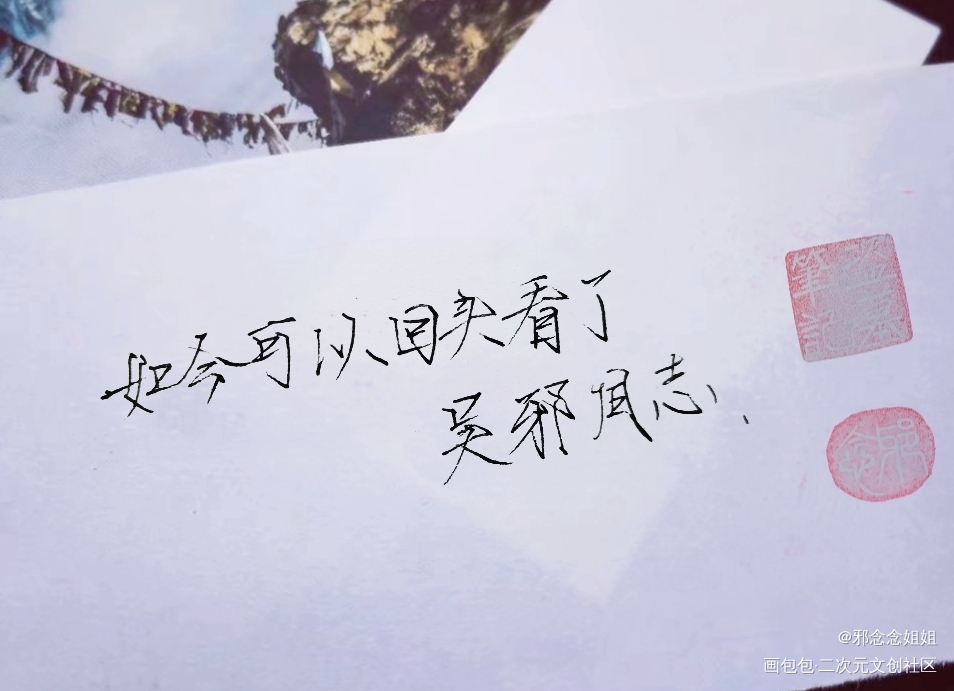 如今可以回头看了
吴邪同志、
盗墓
筆記
@邪念念姐姐
画包包·二次元文创社区